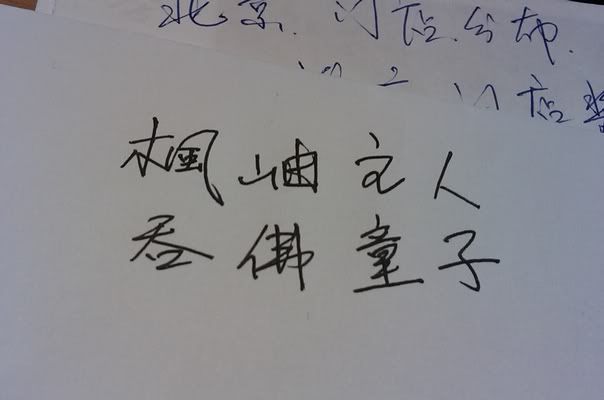 北京.门店分布.
门店
楓岫主人
吞佛童子